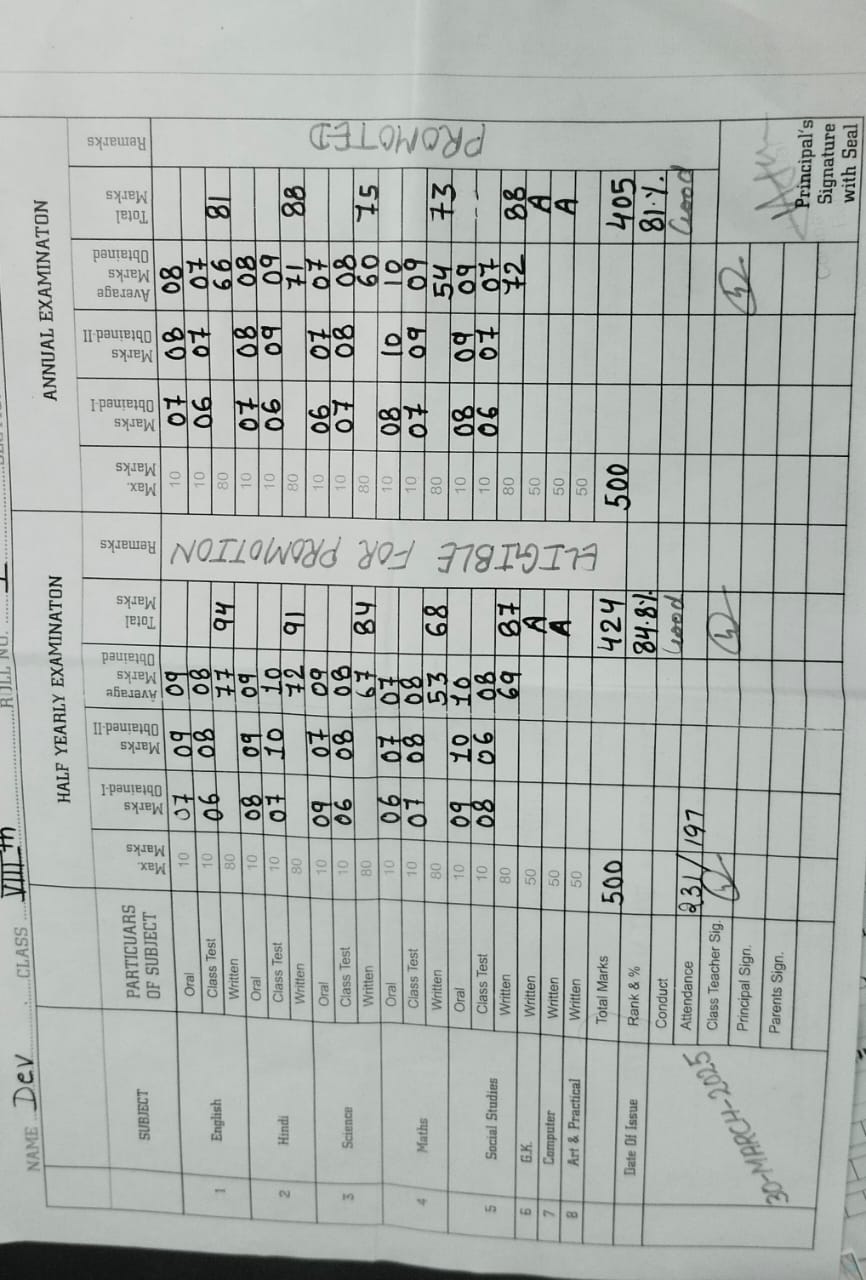 NAME Dev CLASS VIII th ROLL NO.
HALF YEARLY EXAMINATON ANNUAL EXAMINATON
SUBJECT PARTICUARS OF SUBJECT Max. Marks Marks Obtained-I Marks Obtained-II Average Marks Obtained Total Marks Remarks Max. Marks Marks Obtained-I Marks Obtained-II Average Marks Obtained Total Marks Remarks
Oral 10 07 09 09 10 07 08 08
1 English Class Test 10 06 08 08 10 06 07 07
Written 80 77 94 80 66 81
Oral 10 08 09 09 10 07 08 08
2 Hindi Class Test 10 07 10 10 10 06 09 09
Written 80 72 91 80 71 88
Oral 10 09 07 09 10 06 07 07
3 Science Class Test 10 06 08 08 10 07 08 08
Written 80 67 84 80 60 75
Oral 10 06 07 07 10 08 10 10
4 Maths Class Test 10 07 08 08 10 07 09 09
Written 80 53 68 80 54 73
Oral 10 09 10 10 10 08 09 09 ---
5 Social Studies Class Test 10 08 06 08 10 06 07 07
Written 80 69 87 80 72 88
6 G.K. Written 50 A 50 A
7 Computer Written 50 A 50 A
8 Art & Practical Written 50 50
ELIGIBLE FOR PROMOTION
PROMOTED
Total Marks 500 424 500 405
Date Of Issue Rank & % 84.8% 81%
Conduct Good Good
Attendance 231/197
Class Teacher Sig.
30-MARCH-2025
Principal Sign.
Parents Sign.
Principal's
Signature
with Seal